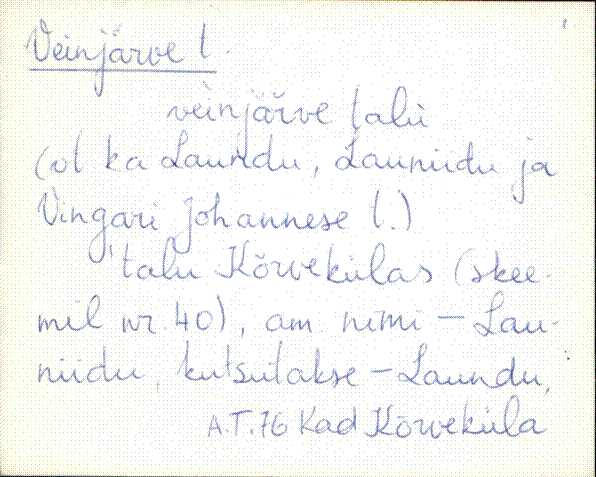 Veinjärve t.
veinjärve talu
(vt ka Laundu, Launiidu ja
Vingari Johannese t.)
talu Kõrvekülas (skee-
mil nr. 40), am nimi - Lau-
niidu, kutsutakse - Laundu,
A.T.76 Kad Kõrveküla